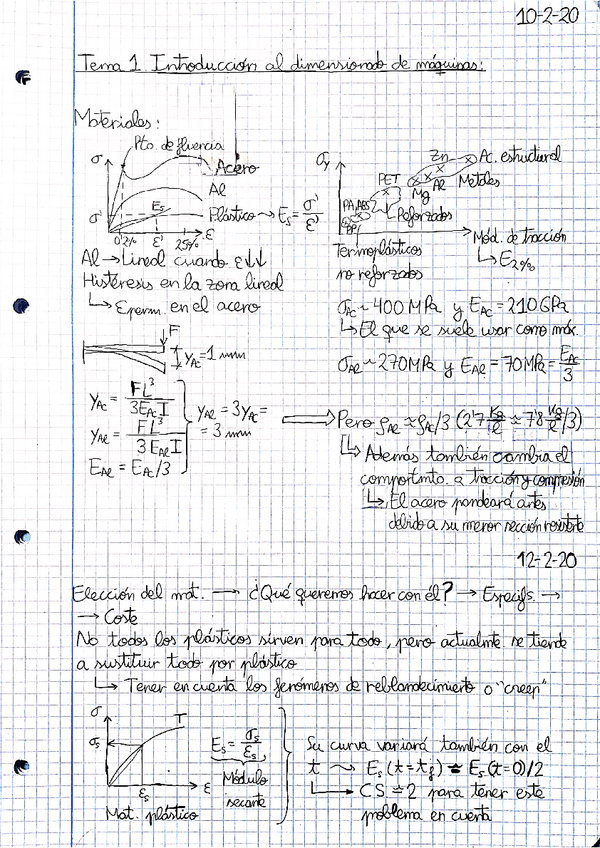 10-2-20
Tema 1 Introducción al dimensionado de máquinas:
Materiales:
Pto. de fluencia
σ
Acero
Al
Plástico → Es = σ'/ε'
σ'
Es
0'2% ε' 25% ε
σy
Zn
Ac. estructural
PET
Mg
Al
Metales
PA, ABS
Reforzados
PP
Termoplásticos
no reforzados
Mód. de tracción
↳ E2%
Al → Lineal cuando ε↓↓
Histéresis en la zona lineal
↳ εperm. en el acero
F
yAc = 1 mm
σAc ~ 400 MPa y EAc = 210 GPa
↳ El que se suele usar como máx.
σAl ~ 270 MPa y EAl = 70 MPa = EAc/3
yAc = FL³/3EAcI
yAl = FL³/3EAlI
EAl = EAc/3
yAl = 3yAc =
= 3 mm
⇒ Pero ρAl ≈ ρAc/3 (2'7 kg/l ≈ 7'8 kg/l/3)
↳ Además también cambia el
comportmto. a tracción y compresión
↳ El acero pandeará antes
debido a su menor sección resistente
12-2-20
Elección del mat. → ¿Qué queremos hacer con él? → Especifs. →
→ Coste
No todos los plásticos sirven para todo, pero actualmte. se tiende
a sustituir todo por plástico
↳ Tener en cuenta los fenómenos de reblandecimiento o "creep"
σ
T
σs
εs
ε
Mat. plástico
Es = σs/εs
Módulo
secante
Su curva variará también con el
t ⤳ Es (t=tf) ≐ Es (t=0)/2
↳ CS ≐ 2 para tener este
problema en cuenta